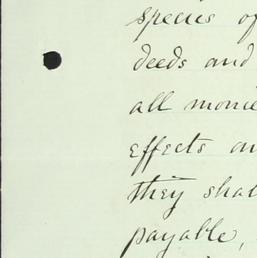 species of
deeds and
all monie
effects an
they shal
payable,